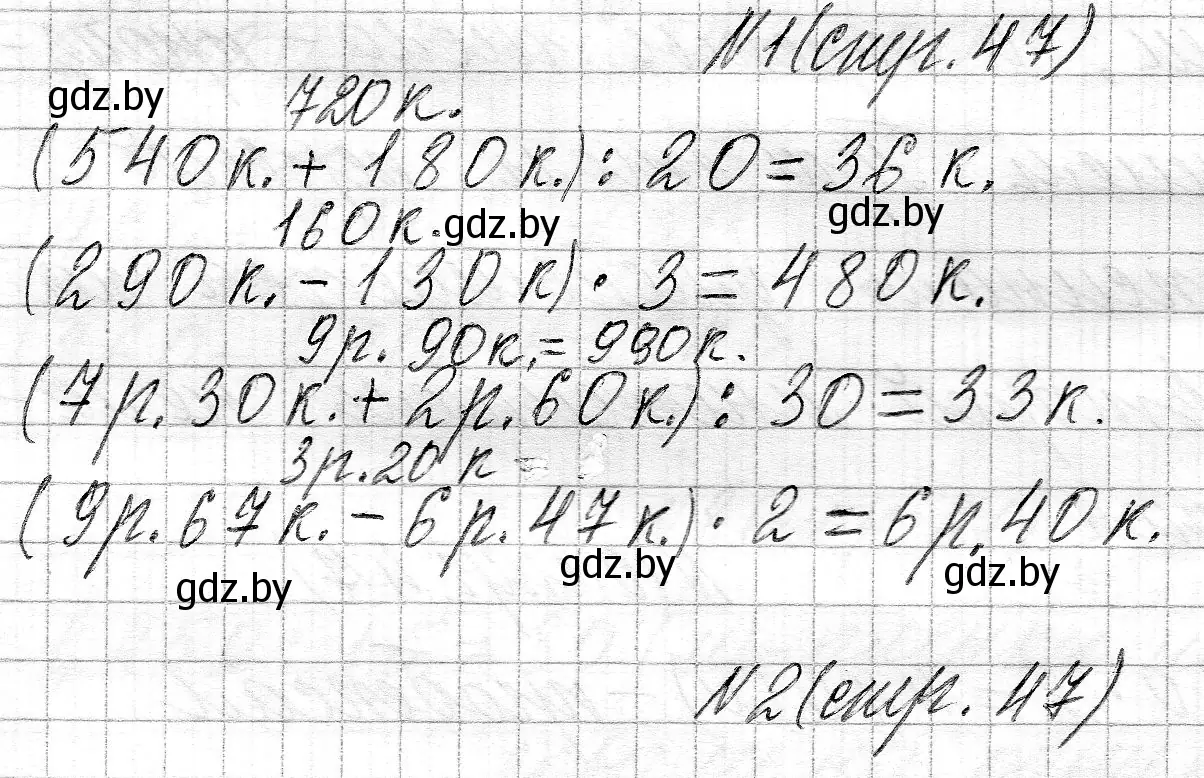 №1 (стр. 47)
gdz.by 720 к.
(540 к. + 180 к.) : 20 = 36 к.
160 к. gdz.by gdz.by
(290 к. - 130 к) · 3 = 480 к.
9 р. 90 к. = 990 к.
(7 р. 30 к. + 2 р. 60 к.) : 30 = 33 к.
3 р. 20 к =
(9 р. 67 к. - 6 р. 47 к.) · 2 = 6 р. 40 к.
gdz.by gdz.by gdz.by
№2 (стр. 47)